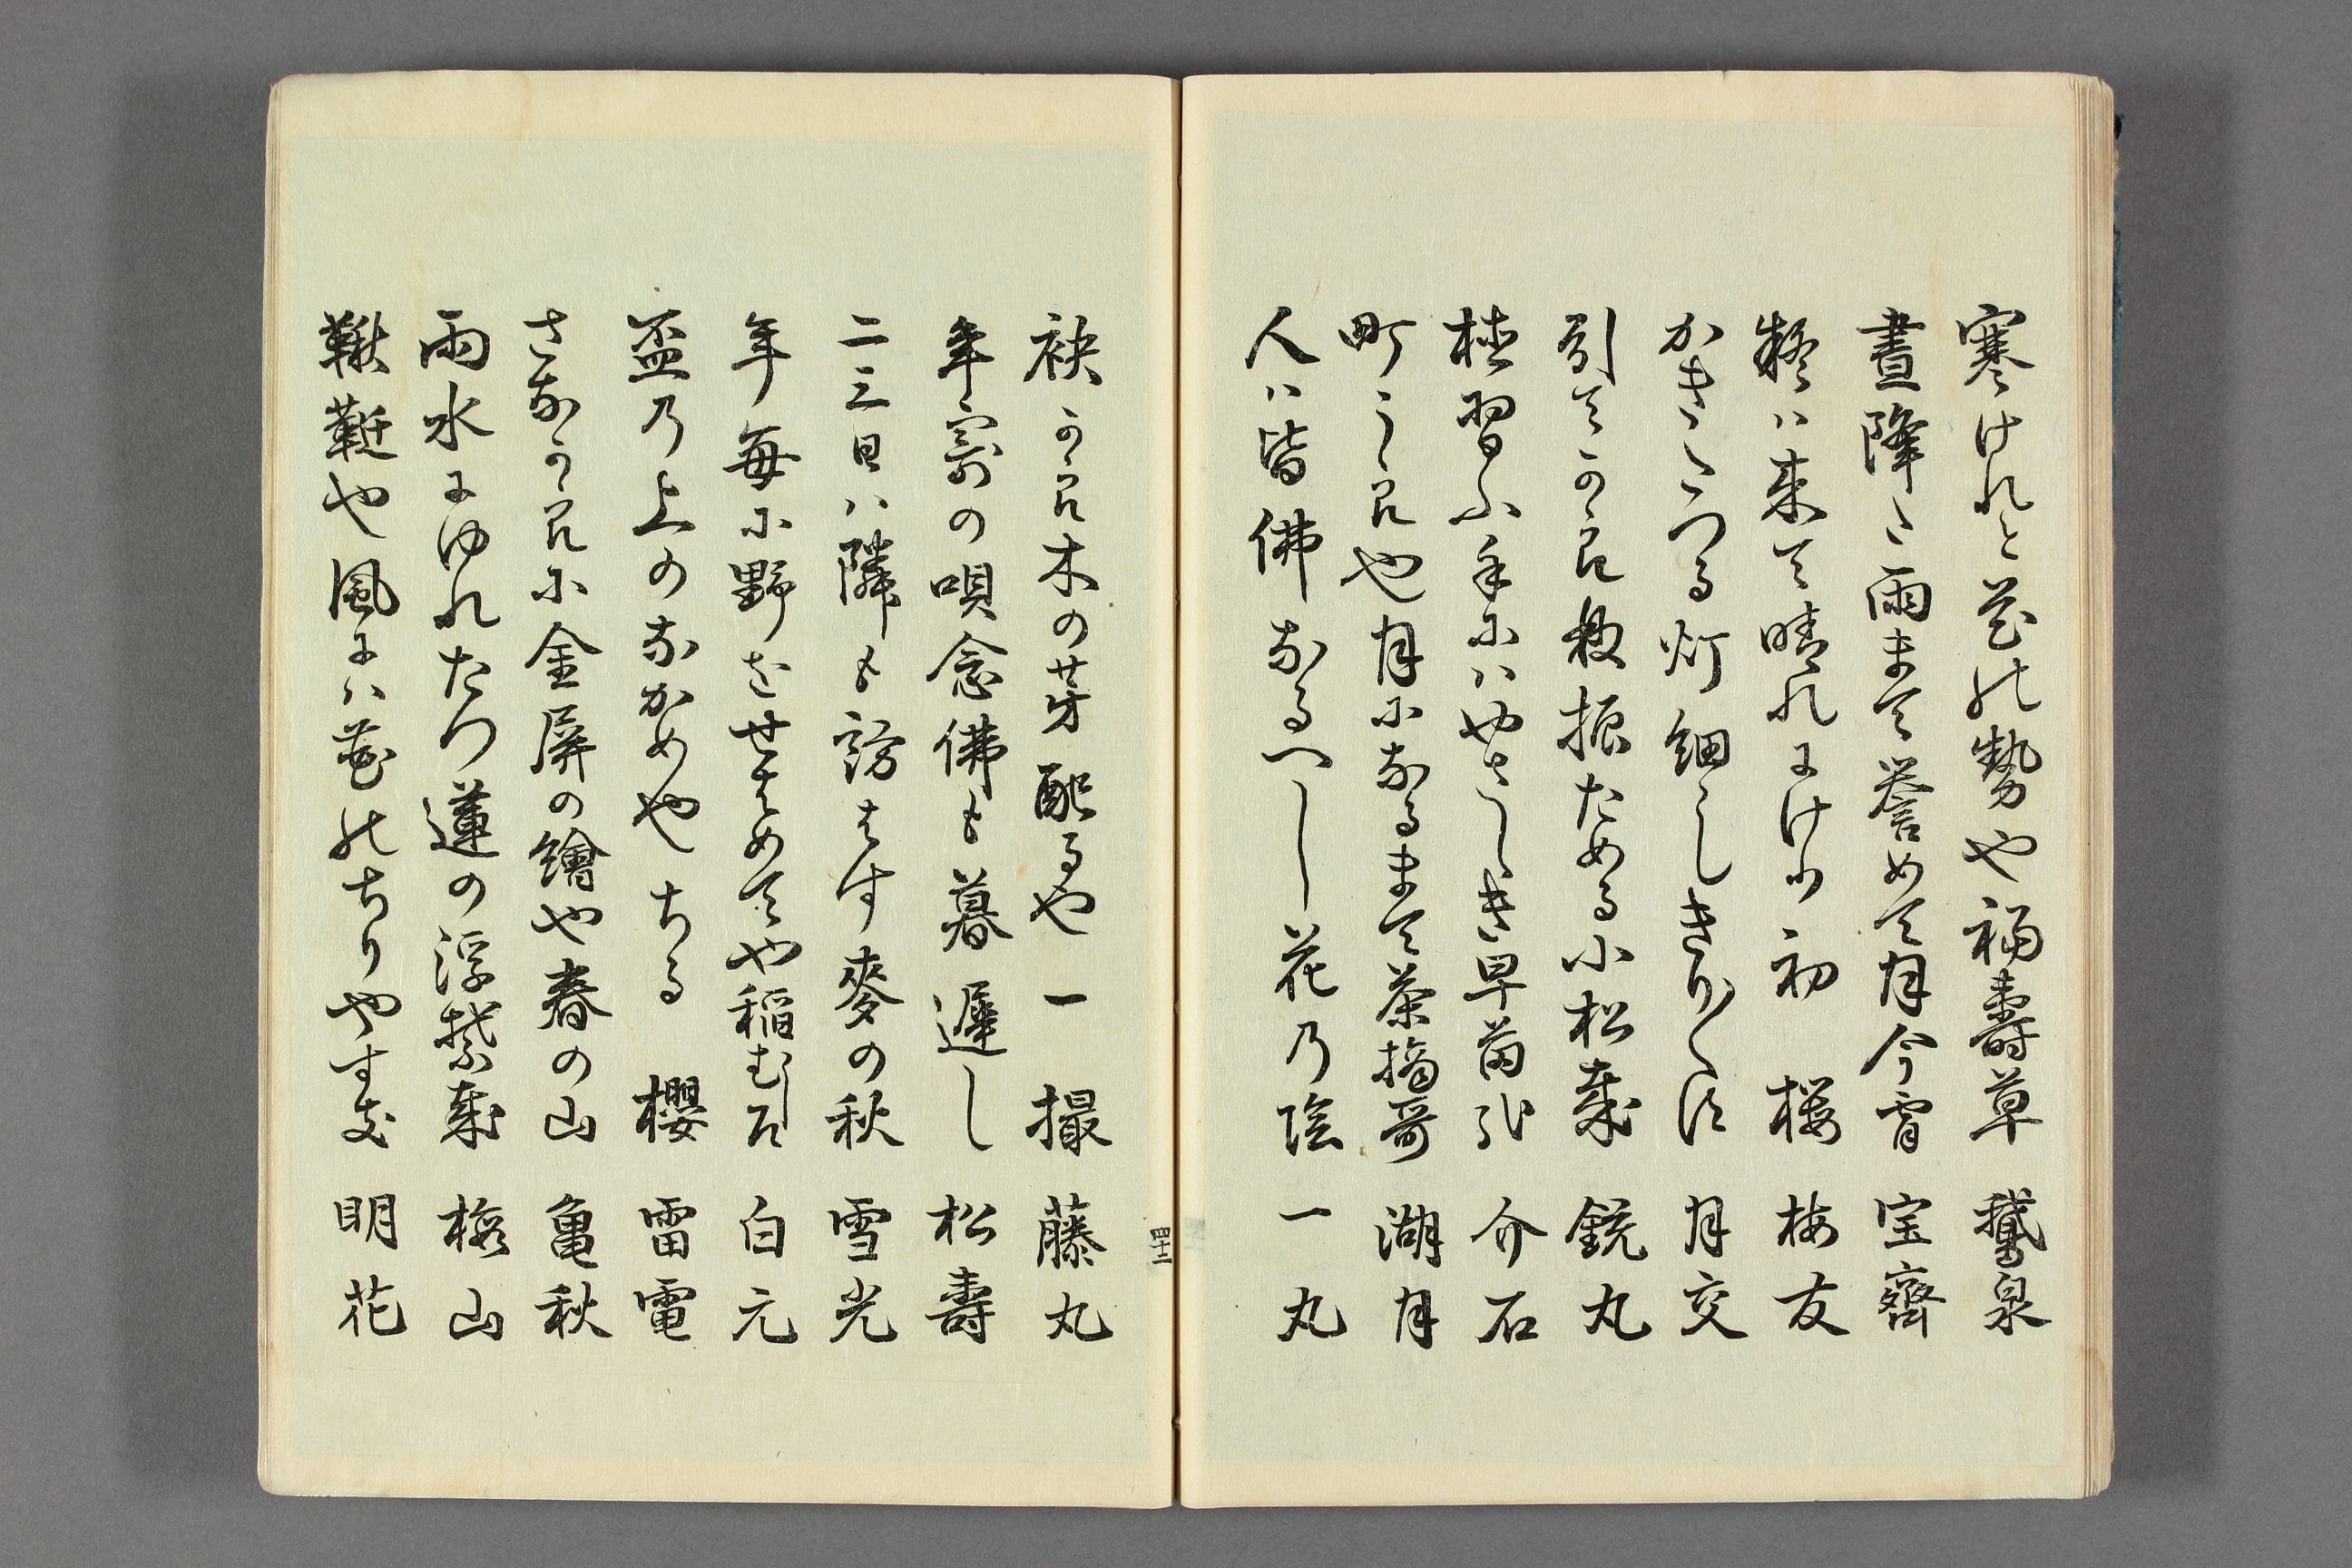 寒けれと花の勢や福壽草 鵞泉
晝降た雨まて誉めて月今宵 宝齋
疑ハ来て晴れにけり初桜 梅友
かきたつる灯細しきり〳〵す 月交
引てから枝振ためる小松哉 鋭丸
植習ふ手にハやさしき早苗 介石
町うらや月になるまて茶摘哥 湖月
人ハ皆佛なるへし花乃陰 一丸
袂から木の芽配るや一撮 藤丸
年寄の唄念佛も暮遅し 松壽
二三日ハ隣も訪はす麥の秋 雪光
年毎に野をせはめてや稲むしろ 白元
盃乃上のなかめやちる櫻 雷電
さなからに金屏の繪や春の山 亀秋
雨水にゆれたつ蓮の浮葉哉 梅山
鞦韆や風にハ花のちりやすき 明花
四十二